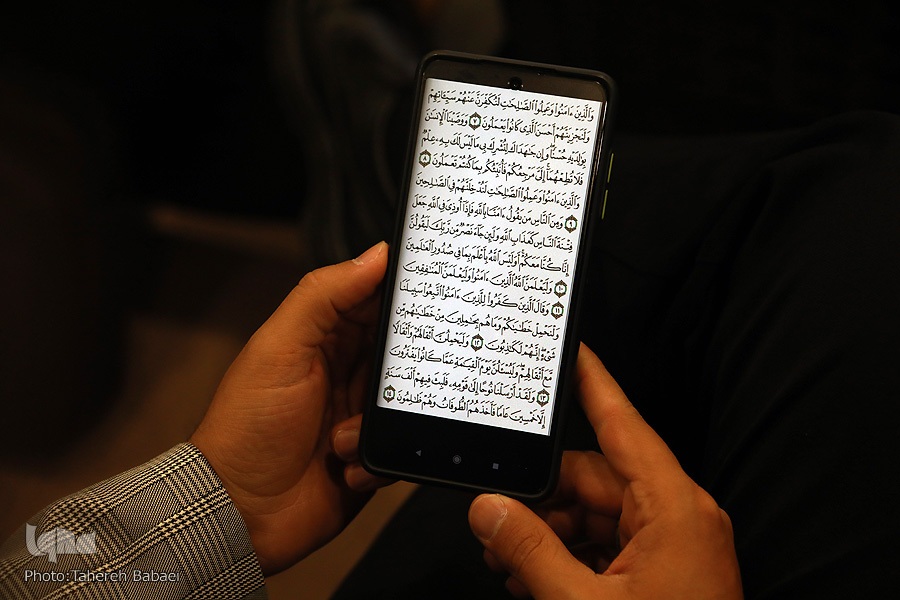 وَٱلَّذِينَ ءَامَنُوا۟ وَعَمِلُوا۟ ٱلصَّـٰلِحَـٰتِ لَنُكَفِّرَنَّ عَنْهُمْ سَيِّـَٔاتِهِمْ
وَلَنَجْزِيَنَّهُمْ أَحْسَنَ ٱلَّذِى كَانُوا۟ يَعْمَلُونَ ٧ وَوَصَّيْنَا ٱلْإِنسَـٰنَ
بِوَٰلِدَيْهِ حُسْنًا وَإِن جَـٰهَدَاكَ لِتُشْرِكَ بِى مَا لَيْسَ لَكَ بِهِۦ عِلْمٌ
فَلَا تُطِعْهُمَآ إِلَىَّ مَرْجِعُكُمْ فَأُنَبِّئُكُم بِمَا كُنتُمْ تَعْمَلُونَ ٨
وَٱلَّذِينَ ءَامَنُوا۟ وَعَمِلُوا۟ ٱلصَّـٰلِحَـٰتِ لَنُدْخِلَنَّهُمْ فِى ٱلصَّـٰلِحِينَ
٩ وَمِنَ ٱلنَّاسِ مَن يَقُولُ ءَامَنَّا بِٱللَّهِ فَإِذَآ أُوذِىَ فِى ٱللَّهِ جَعَلَ
فِتْنَةَ ٱلنَّاسِ كَعَذَابِ ٱللَّهِ وَلَئِن جَآءَ نَصْرٌ مِّن رَّبِّكَ لَيَقُولُنَّ
إِنَّا كُنَّا مَعَكُمْ أَوَلَيْسَ ٱللَّهُ بِأَعْلَمَ بِمَا فِى صُدُورِ ٱلْعَـٰلَمِينَ
١٠ وَلَيَعْلَمَنَّ ٱللَّهُ ٱلَّذِينَ ءَامَنُوا۟ وَلَيَعْلَمَنَّ ٱلْمُنَـٰفِقِينَ
١١ وَقَالَ ٱلَّذِينَ كَفَرُوا۟ لِلَّذِينَ ءَامَنُوا۟ ٱتَّبِعُوا۟ سَبِيلَنَا
وَلْنَحْمِلْ خَطَـٰيَـٰكُمْ وَمَا هُم بِحَـٰمِلِينَ مِنْ خَطَـٰيَـٰهُم مِّن
شَىْءٍ إِنَّهُمْ لَكَـٰذِبُونَ ١٢ وَلَيَحْمِلُنَّ أَثْقَالَهُمْ وَأَثْقَالًا
مَّعَ أَثْقَالِهِمْ وَلَيُسْـَٔلُنَّ يَوْمَ ٱلْقِيَـٰمَةِ عَمَّا كَانُوا۟ يَفْتَرُونَ
١٣ وَلَقَدْ أَرْسَلْنَا نُوحًا إِلَىٰ قَوْمِهِۦ فَلَبِثَ فِيهِمْ أَلْفَ سَنَةٍ
إِلَّا خَمْسِينَ عَامًا فَأَخَذَهُمُ ٱلطُّوفَانُ وَهُمْ ظَـٰلِمُونَ ١٤
iqna
Photo: Tahereh Babaei